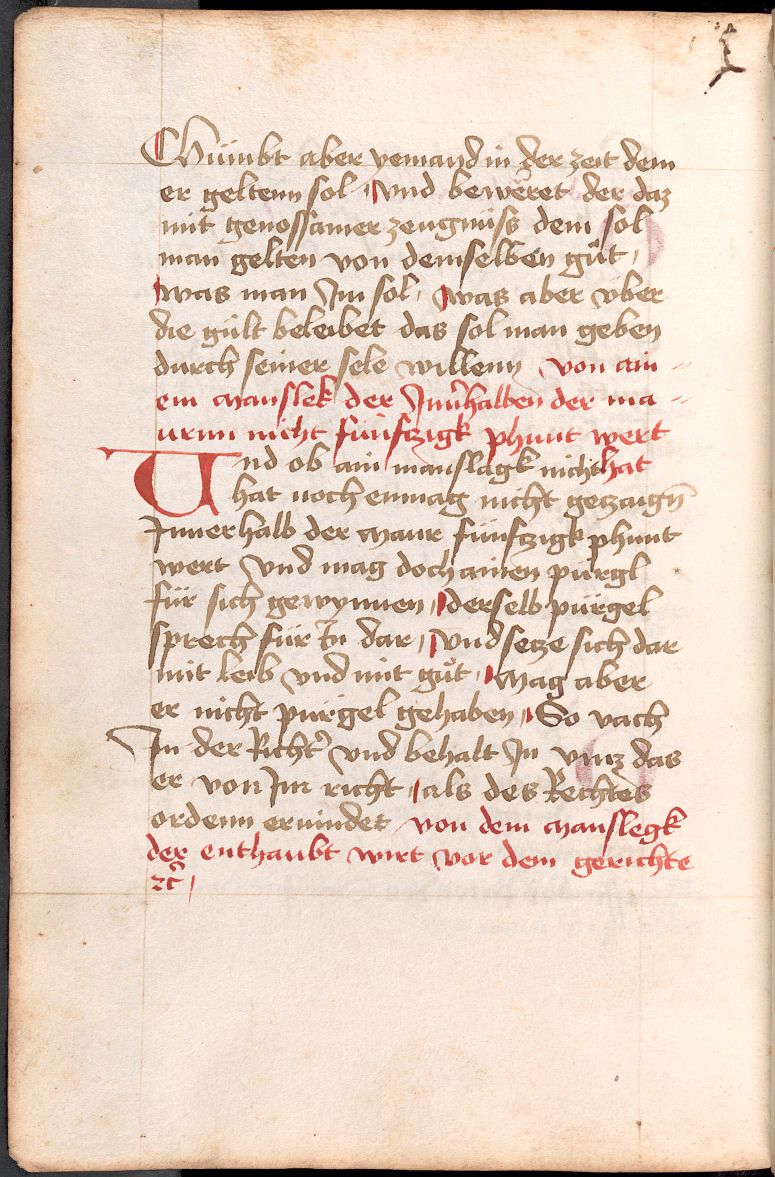 Chumbt aber yemand in der zeit dem
er geltenn sol / Vnd bewëret der daz
mit genossamer zeugnüss dem sol
man gelten von demselben gůt /
was man Jm sol / was aber vber
die gült beleibet das sol man geben
durch seiner sele willenn von ain=
em manslek der Jnn'halben der ma=
urnn nicht fünfzigk phunt wert
Vnd ob ain manslagk nicht hat
hat noch enmag nicht getzaign̄
Jnnerhalb der maur fünfczigk phunt
wert Vnd mag doch ainen pürgl
für sich gewynnen / derselb pürgel
sprech für In dar / Vnd setze sich dar
mit leib vnd mit gůt / Mag aber
er nicht pürgel gehaben / So vach
In der Richt' vnd behalt Jn vncz das
er von Jm richt / als des Rechtes
ordenn eruindet von dem manslegk
der enthaubt wirt vor dem gerichte
ꝛc̄ /